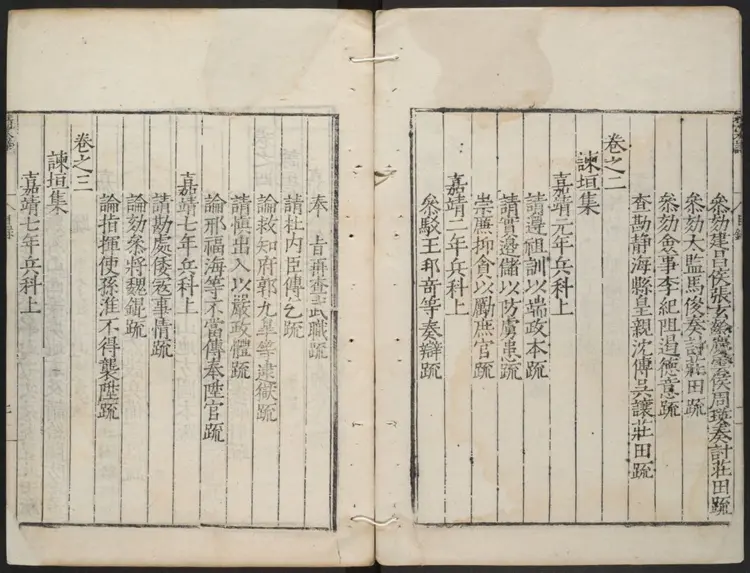 叅劾建昌侯張玄齡慶陽伯侯周瑛奏討莊田疏
叅劾太監馬俊奏討莊田疏
叅劾僉事李紀阻遏德意疏
查勘靜海縣皇親沈傳吳讓莊田疏
卷之二
諫垣集
嘉靖元年兵科上
請遵祖訓以端政本疏
請實邊儲以防虜患疏
崇廉抑貪以勵庶官疏
嘉靖二年兵科上
叅駁王邦音等奏辯疏
奉 旨再查武職疏
請杜内臣傳乞疏
論救知府郭九皐等逮獄疏
請慎出入以嚴政體疏
論邢福海等不當傳奉陞官疏
嘉靖七年兵科上
請勘處倭宼事情疏
論劾叅將魏錕疏
論指揮使孫淮不得襲陞疏
卷之三
諫垣集
嘉靖七年兵科上
目錄